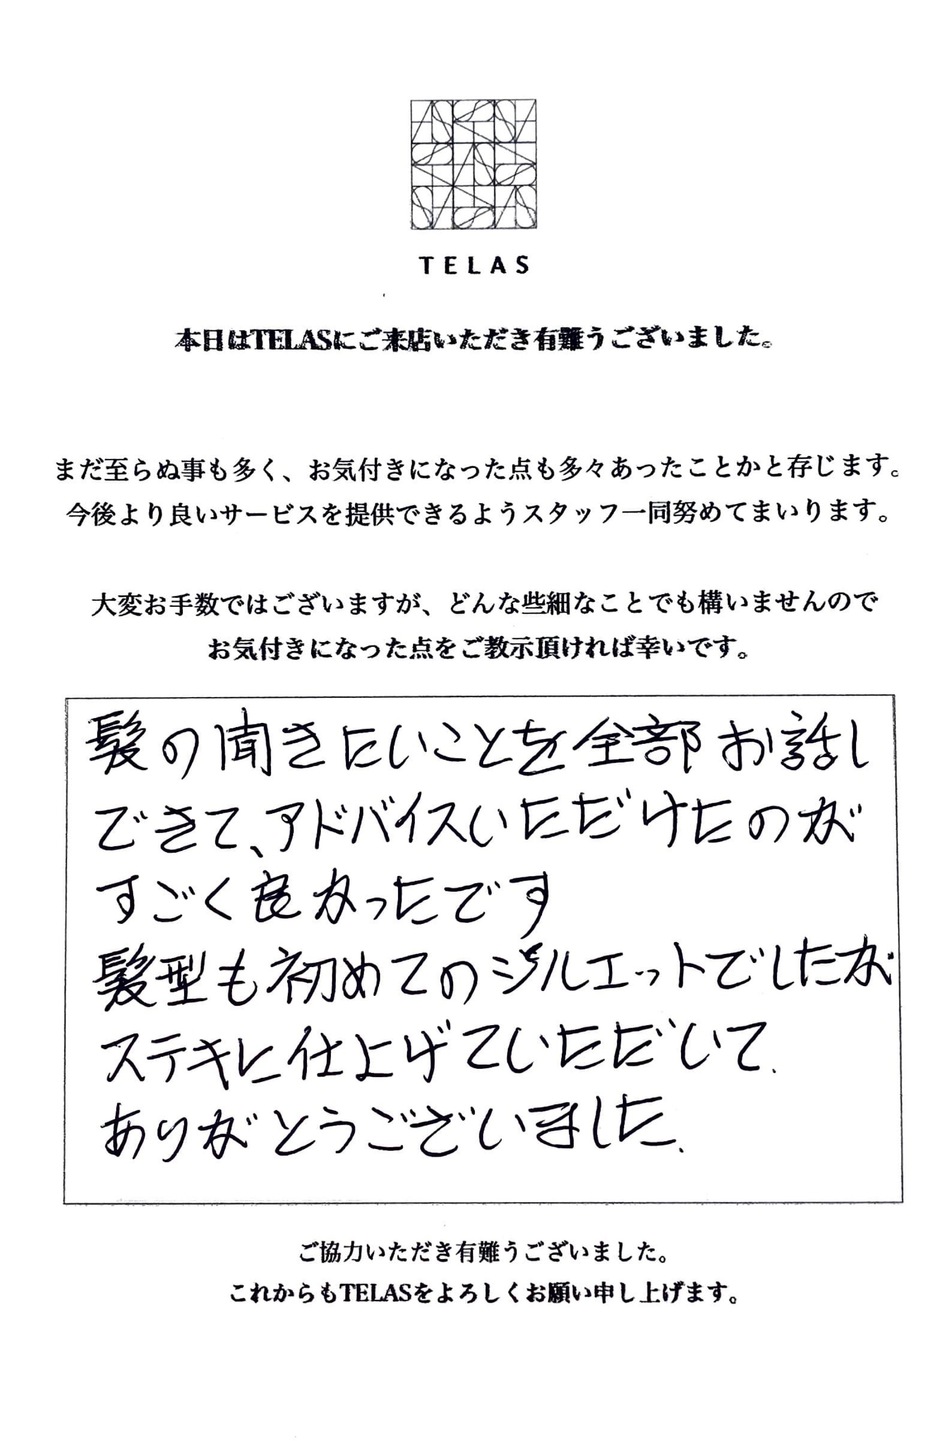 TELAS
本日はTELASにご来店いただき有難うございました。
まだ至らぬ事も多く、お気付きになった点も多々あったことかと存じます。
今後より良いサービスを提供できるようスタッフ一同努めてまいります。
大変お手数ではございますが、どんな些細なことでも構いませんので
お気付きになった点をご教示頂ければ幸いです。
髪の聞きたいことを全部お話し
できて、アドバイスいただけたのが
すごく良かったです
髪型も初めてのシルエットでしたが
ステキに仕上げていただいて、
ありがとうございました。
ご協力いただき有難うございました。
これからもTELASをよろしくお願い申し上げます。